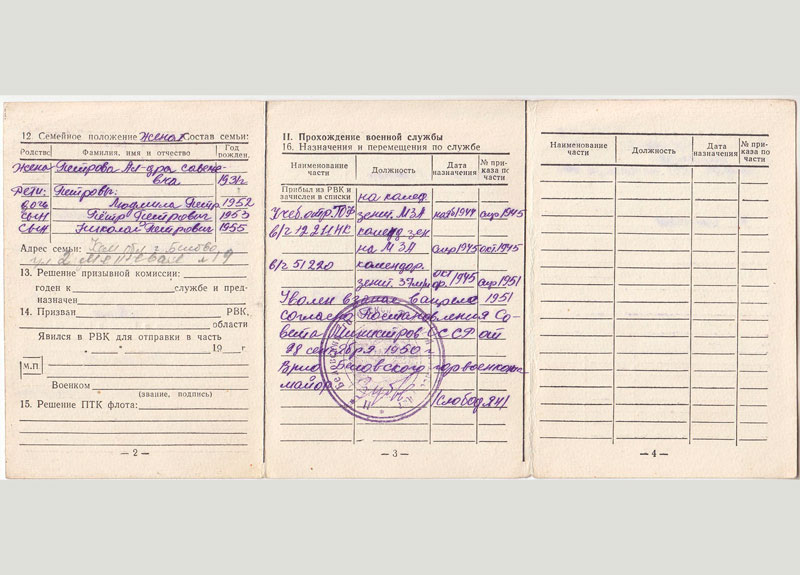 12. Семейное положение Женат Состав семьи:
Родство Фамилия, имя и отчество Год рожден.
Жена Петрова
вна 1931г
Дети: Петровы:
дочь Людмила Петр 1952
сын Пётр Петрович 1953
сын Николай Петрович 1955
Адрес семьи: г. Белово
ул.
13. Решение призывной комиссии:
годен к службе и пред-
назначен
14. Призван РВК,
области
Явился в РВК для отправки в часть
„ “ 19 г
М.П
Военком
(звание, подпись)
15. Решение ПТК флота:
— 2 —
II. Прохождение военной службы
16. Назначения и перемещения по службе
Наименование части Должность Дата назначения № приказа по части
Прибыл из РВК и
зачислен в списки на комед.
Учеб.отр. ТОФ зенит. МЗА нояб 1944 апр 1945
в/г комендор зен
на МЗА апр 1945 окт 1945
в/г 51220 комендор. окт
зенит. 37мм 1945 апр 1951
Уволен в запас в апреле 1951
согласно Постановления Со-
вета Министров СССР от
сентября 1950 г
Врио Беловского горвоенком
майор
/Слободян/
— 3 —
Наименование части Должность Дата назначения № приказа по части
— 4 —